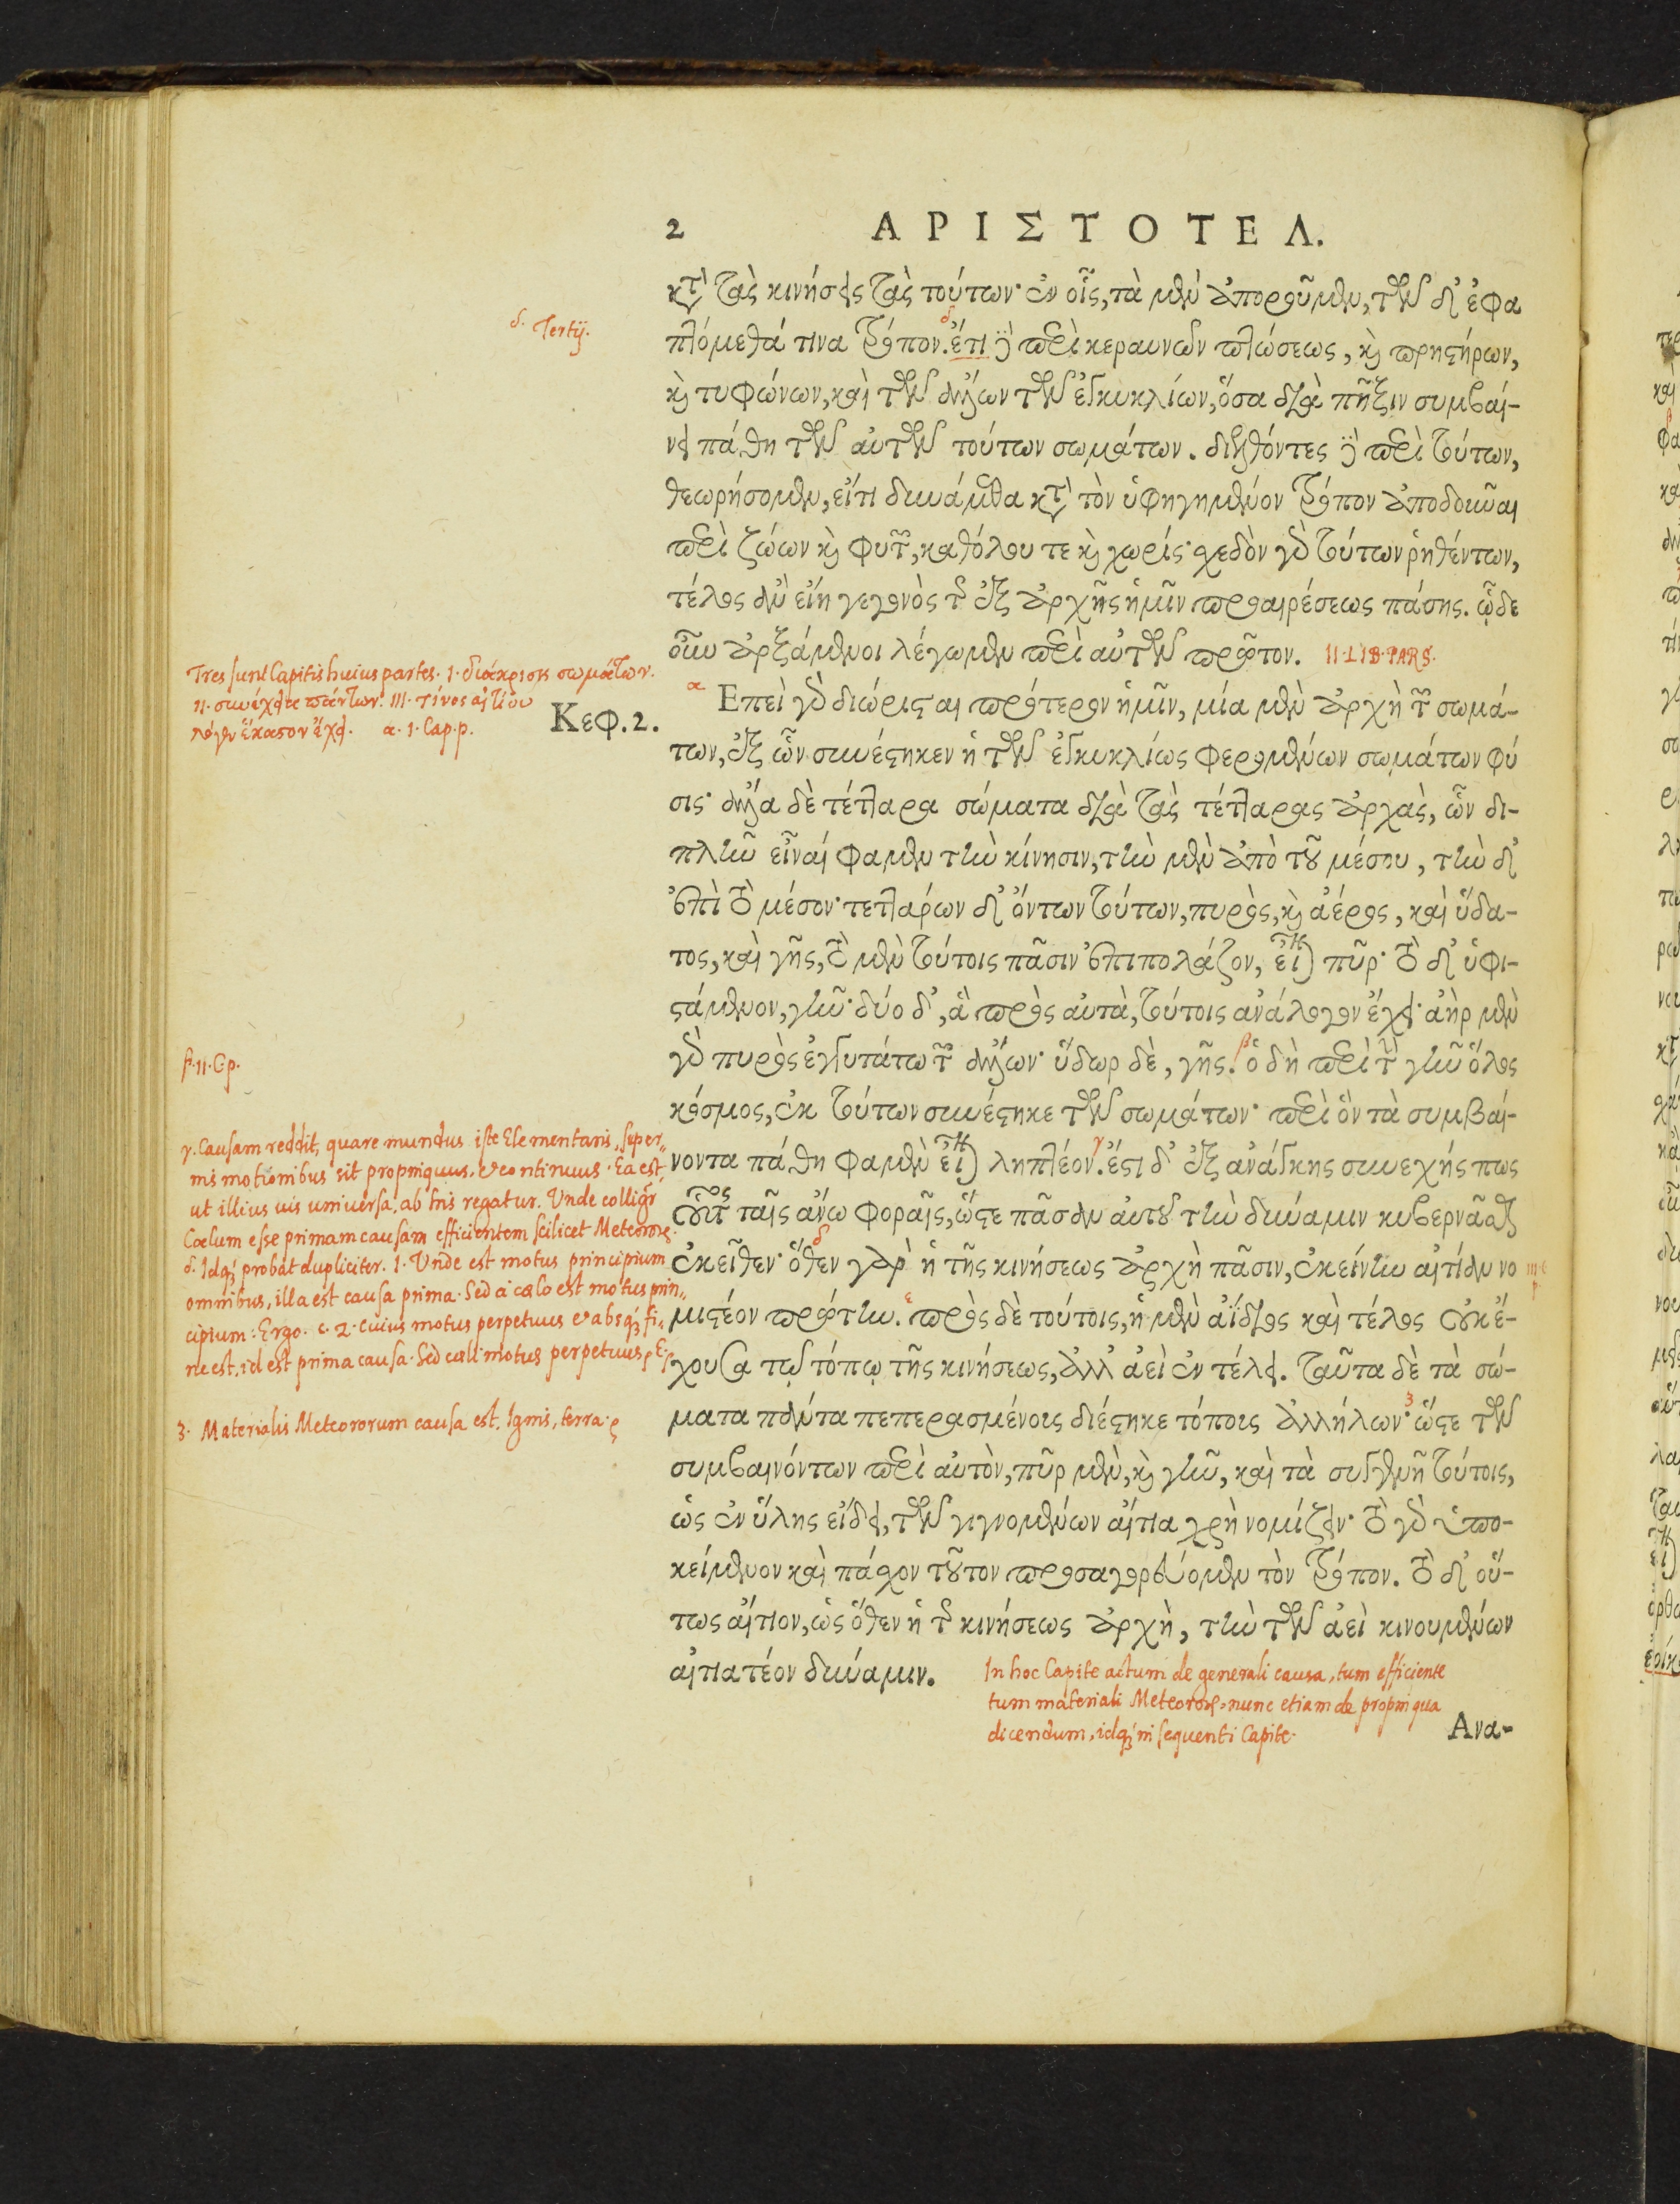 2 ΑΡΙΣΤΟΤΕΛ.
κτ̀ τὰς κινήσεις τὰς τούτων· ἐν οἷς, τὰ μὲν ἀπορούμεν, τῶν δ' ἐφα
πτόμεθά τινα τρόπον. ἔτι δὲ περὶ κεραυνῶν πτώσεως, κ̀ πρηστήρων,
κ̀ τυφώνων, καὶ τῶν ἄλλων τῶν ἐγκυκλίων, ὅσα διὰ πῆξιν συμβαί-
νει πάθη τῶν αὐτῶν τούτων σωμάτων. διελθόντες δὲ περὶ τούτων,
θεωρήσομεν, εἴτι δυνάμεθα κτ̀ τὸν ὑφηγημένον τρόπον ἀποδοῦναι
περὶ ζώων κ̀ φυτῶν, καθόλου τε κ̀ χωρίς· σχεδὸν γὸ τούτων ῥηθέντων,
τέλος ἂν εἴη γεγονὸς τῆς ἐξ ἀρχῆς ἡμῖν προαιρέσεως πάσης. ὧδε
οὖν ἀρξάμενοι λέγωμεν περὶ αὐτῶν πρῶτον. II·LIB·PARS·
Επεὶ γὸ διώρισται πρότερον ἡμῖν, μία μὲν ἀρχὴ τῶν σωμά-
των, ἐξ ὧν συνέστηκεν ἡ τῶν ἐγκυκλίως φερομένων σωμάτων φύ
σις· ἄλλα δὲ τέτταρα σώματα διὰ τὰς τέτταρας ἀρχὰς, ὧν δι-
πλῆν εἶναί φαμεν τὴν κίνησιν, τὴν μὲν ἀπὸ τοῦ μέσου, τὴν δ'
ἐπὶ τὸ μέσον· τεττάρων δ' ὄντων τούτων, πυρὸς, κ̀ ἀέρος, καὶ ὕδα-
τος, καὶ γῆς, τὸ μὲν τούτοις πᾶσιν ἐπιπολάζον, εἶναι πῦρ· τὸ δ' ὑφι-
στάμενον, γῆν· δύο δ', ἃ πρὸς αὐτὰ, τούτοις ἀνάλογον ἔχει· ἀὴρ μὲν
γὸ πυρὸς ἐγγυτάτω τῶν ἄλλων· ὕδωρ δὲ, γῆς. ὁ δὴ περὶ τὴν γῆν ὅλος
κόσμος, ἐκ τούτων συνέστηκε τῶν σωμάτων· περὶ ὃν τὰ συμβαί-
νοντα πάθη φαμὲν εἶναι ληπτέον. ἔστι δ' ἐξ ἀνάγκης συνεχής πως
οὗτος ταῖς ἄνω φοραῖς, ὥστε πᾶσαν αὐτοῦ τὴν δύναμιν κυβερνᾶσθαι
ἐκεῖθεν· ὅθεν γὰρ ἡ τῆς κινήσεως ἀρχὴ πᾶσιν, ἐκείνην αἰτίαν νο
μιστέον πρώτην. πρὸς δὲ τούτοις, ἡ μὲν ἀΐδιος καὶ τέλος οὐκ ἔ-
χουσα τῷ τόπῳ τῆς κινήσεως, ἀλλ' ἀεὶ ἐν τέλει. ταῦτα δὲ τὰ σώ-
ματα πάντα πεπερασμένοις διέστηκε τόποις ἀλλήλων· ὥστε τῶν
συμβαινόντων περὶ αὐτὸν, πῦρ μὲν, κ̀ γῆν, καὶ τὰ συγγενῆ τούτοις,
ὡς ἐν ὕλης εἴδει, τῶν γιγνομένων αἴτια χρὴ νομίζειν· τὸ γὸ ὑπο-
κείμενον καὶ πάσχον τοῦτον προσαγορεύομεν τὸν τρόπον. τὸ δ' οὕ-
τως αἴτιον, ὡς ὅθεν ἡ τῆς κινήσεως ἀρχὴ, τὴν τῶν ἀεὶ κινουμένων
αἰτιατέον δύναμιν.
Ανα-
Κεφ. 2.
δ. Tertij.
Tres sunt Capitis huius partes. I. διάκρισις σωμάτων.
II. συνέχεια πάντων. III. τίνος αἰτίου
λόγον ἕκαστον ἔχει. α. 1. Cap. p.
β. II. C. p.
γ. Causam reddit, quare mundus iste Elementaris, super-
nis motionibus sit propinquus, et continuus. Ea est,
ut illius vis universa, ab his regatur. Unde colligr̃
Cœlum esse primam causam efficientem scilicet Meteoroꝝ.
δ. Idq; probat dupliciter. 1. Unde est motus principium
omnibus, illa est causa prima. Sed à cœlo est motus prin-
cipium: Ergo. ε. 2. Cuius motus perpetuus et absq; fi-
ne est, id est prima causa. Sed cœli motus perpetuus, E.
3. Materialis Meteororum causa est, Ignis, terra.
In hoc Capite actum de generali causa, tum efficiente
tum materiali Meteoroꝝ, nunc etiam de propinqua
dicendum, idq; in sequenti Capite.